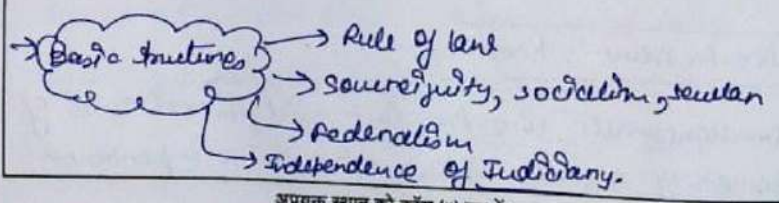 → Basic structures → Rule of law
→ Sovereignity, socialism, secular
→ Federalism
→ Independence of Judiciary.